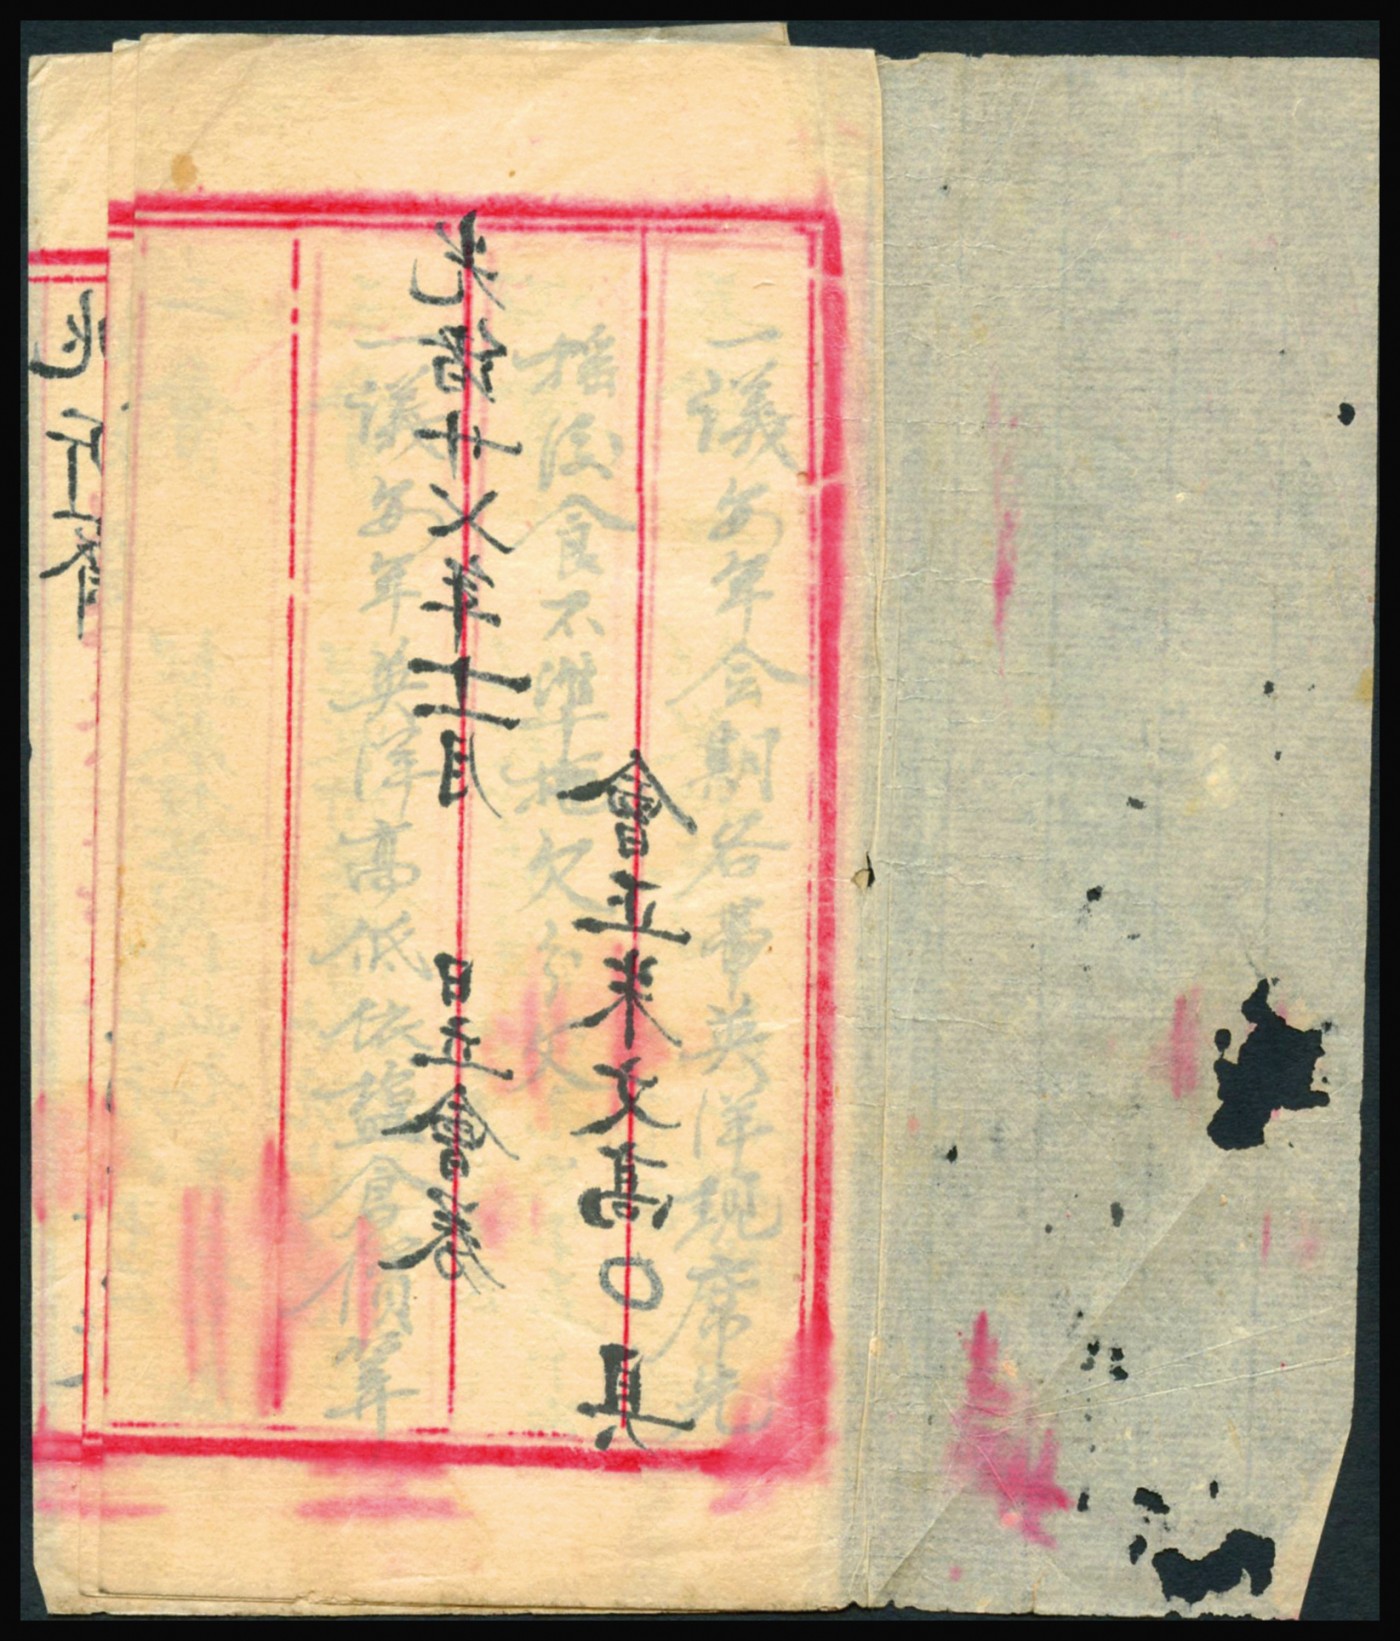 一議每年会期各帶英洋現席先
搖後食不準拖欠分文
一議每年英洋高低依鹽倉價筭
光緒廿乂年十二月 日立會券
會正朱文高〇具